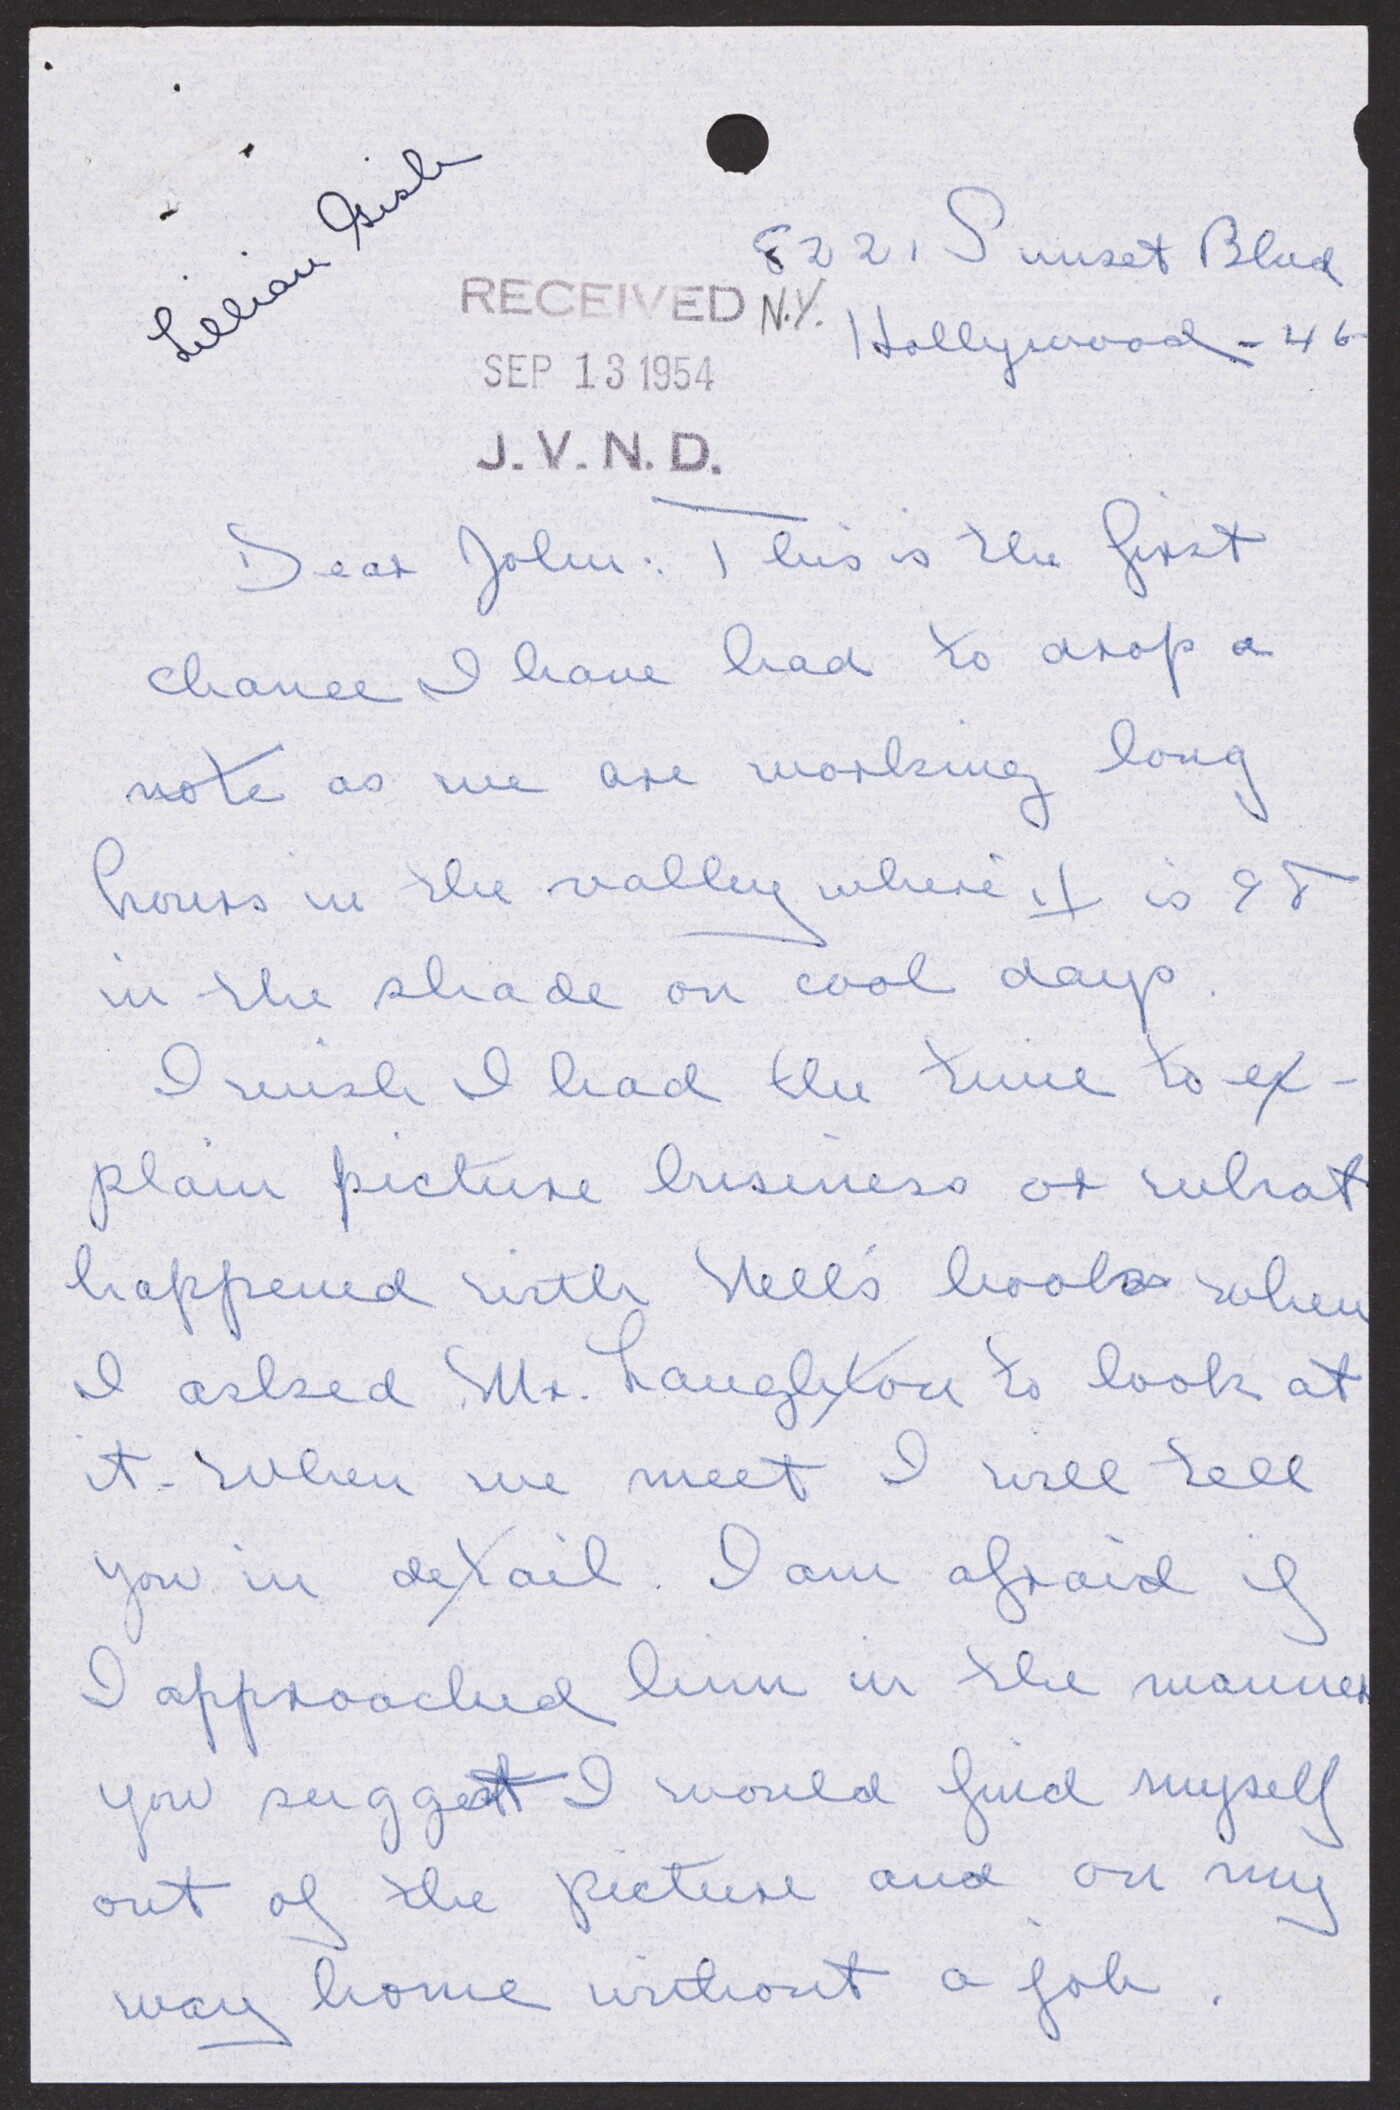 Lillian Gish
8221 Sunset Blvd
RECEIVED N.Y.
Hollywood - 46
SEP 13 1954
J. V. N. D.
Dear John: This is the first
chance I have had to drop a
note as we are working long
hours in the valley where it is 98
in the shade on cool days.
I wish I had the time to ex-
plain picture business or what
happened with Nell's book when
I asked Mr. Laughton to look at
it - when we meet I will tell
you in detail. I am afraid if
I approached him in the manner
you suggest I would find myself
out of the picture and on my
way home without a job.